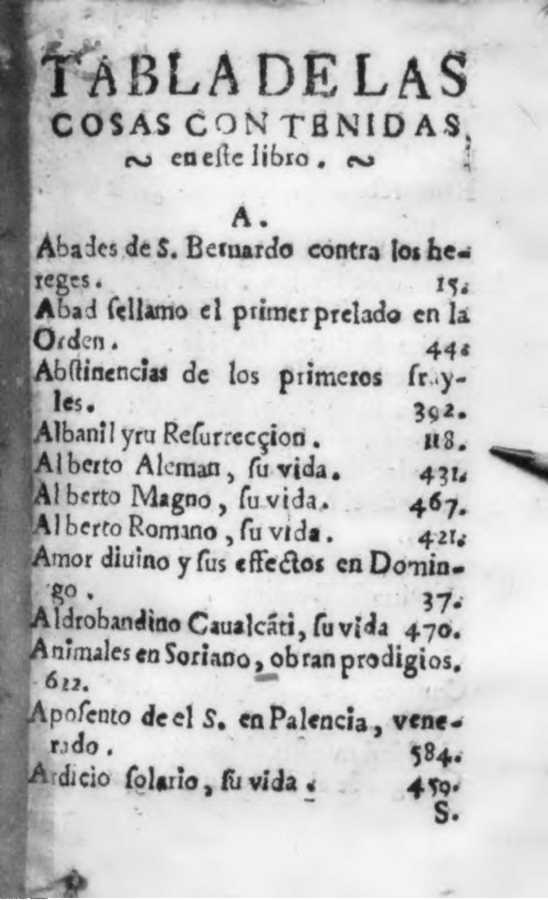 TABLA DE LAS
COSAS CONTENIDAS,
en eſte libro.
A.
Abades de S. Bernardo contra los he-
reges. 15.
Abad ſellamo el primer prelado en la
Orden. 44.
Abſtinencias de los primeros fray-
les. 392.
Albanil yru Reſurrecçion. 118.
Alberto Aleman, ſu vida. 431.
Alberto Magno, ſu vida. 467.
Alberto Romano, ſu vida. 421.
Amor diuino y ſus effectos en Domin-
go. 37.
Aldrobandino Caualcáti, ſu vida 470.
Animales en Soriano, obran prodigios.
622.
Apoſento de el S. en Palencia, vene-
rado. 584.
Ardicio ſolario, ſu vida. 459.
S.